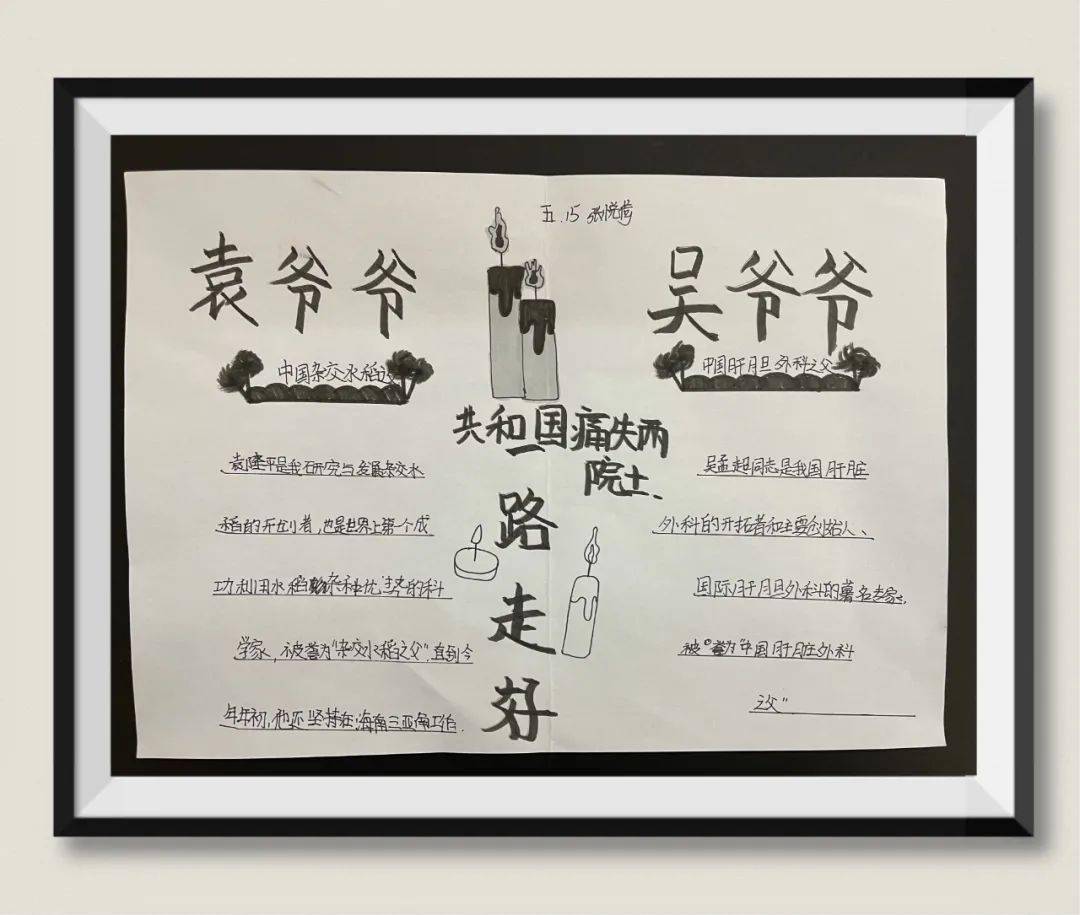 五.15 张悦
袁爷爷
中国杂交水稻之
袁隆平是我国研究与发展杂交水
稻的开创者，也是世界上第一个成
功利用水稻杂种优势的科
学家，被誉为"杂交水稻之父".直到今
年年初，他还坚持在海南三亚工作.
共和国痛失两
院士.
一路走好
吴爷爷
中国肝胆外科之父
吴孟超同志是我国肝脏
外科的开拓者和主要创始人、
国际肝胆外科的著名专家,
被"誉为"中国肝脏外科
之父"